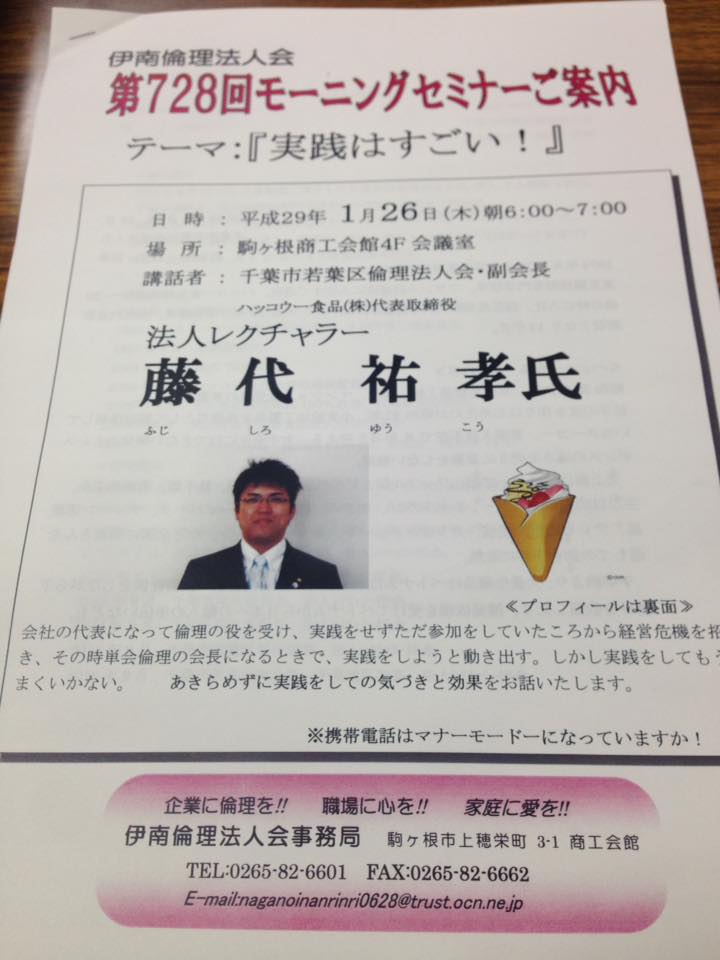 伊南倫理法人会
第728回モーニングセミナーご案内
テーマ：『実践はすごい！』
日 時 ： 平成29年 1月26日（木）朝6：00～7：00
場 所 ： 駒ヶ根商工会館4F 会議室
講話者 ： 千葉市若葉区倫理法人会・副会長
ハッコウー食品(株)代表取締役
法人レクチャラー
藤 代 祐 孝氏
ふじ しろ ゆう こう
≪プロフィールは裏面≫
会社の代表になって倫理の役を受け、実践をせずただ参加をしていたころから経営危機を招
き、その時単会倫理の会長になるときで、実践をしようと動き出す。しかし実践をしてもう
まくいかない。 あきらめずに実践をしての気づきと効果をお話いたします。
※携帯電話はマナーモードーになっていますか！
企業に倫理を!! 職場に心を!! 家庭に愛を!!
伊南倫理法人会事務局 駒ヶ根市上穂栄町 3-1 商工会館
TEL:0265-82-6601 FAX:0265-82-6662
E-mail:naganoinanrinri0628@trust.ocn.ne.jp